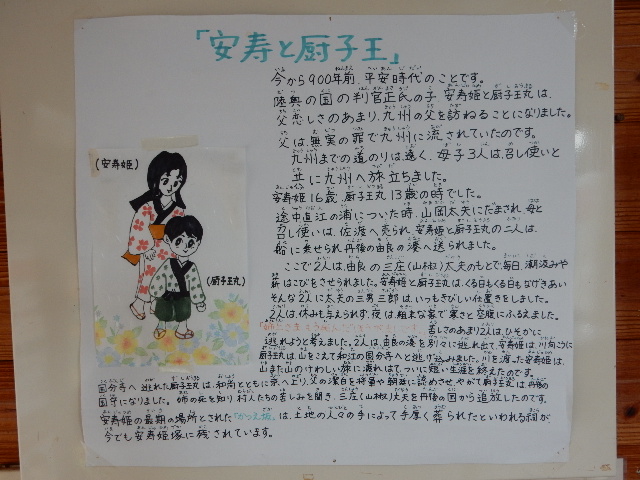 「安寿と厨子王」
今から900年前、平安時代のことです。
陸奥の国の判官正氏の子、安寿姫と厨子王丸は、
父恋しさのあまり、九州の父を訪ねることになりました。
父は、無実の罪で九州に流されていたのです。
九州までの道のりは、遠く、母子3人は、召し使いと
共に九州へ旅立ちました。
安寿姫16歳、厨子王丸13歳の時でした。
途中直江の浦についた時、山岡太夫にだまされ、母と
召し使いは、佐渡へ売られ、安寿姫と厨子王丸の二人は、
船に乗せられ、丹後の由良の湊へ送られました。
ここで2人は、由良の三庄(山椒)太夫のもとで、毎日、潮汲みや
薪はこびをさせられました。安寿姫と厨子王丸は、くる日もくる日もなげきあい
そんな2人に太夫の三男三郎は、いっもきびしい仕置きをしました。
2人は、休みも与えられず、夜は、粗末な家で寒さと空腹にふるえました。
苦しさのあまり2人は、ひそかに
逃れようと考えました。2人は、由良の湊を別々に逃れ出て、安寿姫は、川向こうに
厨子王丸は、山をこえて和江の国分寺へと逃げ込みました。川を渡った安寿姫は、
山また山のけわしい旅に疲れはて、ついに短い生涯を終えたのです。
国分寺へ逃れた厨子王丸は、和尚とともに京へ上り、父の潔白を将軍や朝廷に認めさせ、やがて厨子王丸は、丹後の
国守になりました。姉の死を知り村人たちの苦しみを聞き、三庄(山椒)太夫を丹後の国から追放したのです。
安寿姫の最期の場所とされた「かつえ坂」は、土地の人々の手によって手厚く葬られたといわれる祠が、
今でも安寿姫塚に残されています。
(安寿姫)
(厨子王丸)